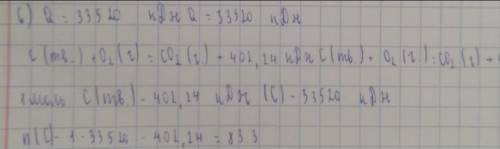 6) Q = 33520 кДж Q = 33520 кДж
C(тв.) + O₂(г) = CO₂(г) + 402,24 кДж C(тв.) + O₂(г) = CO₂(г) +
1 моль C(тв.) - 402,24 кДж (C) - 33520 кДж
n(C) - 1 · 33520 - 402,24 = 83.3